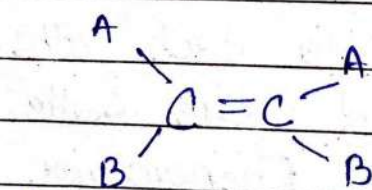 A
A
C=C
B
B